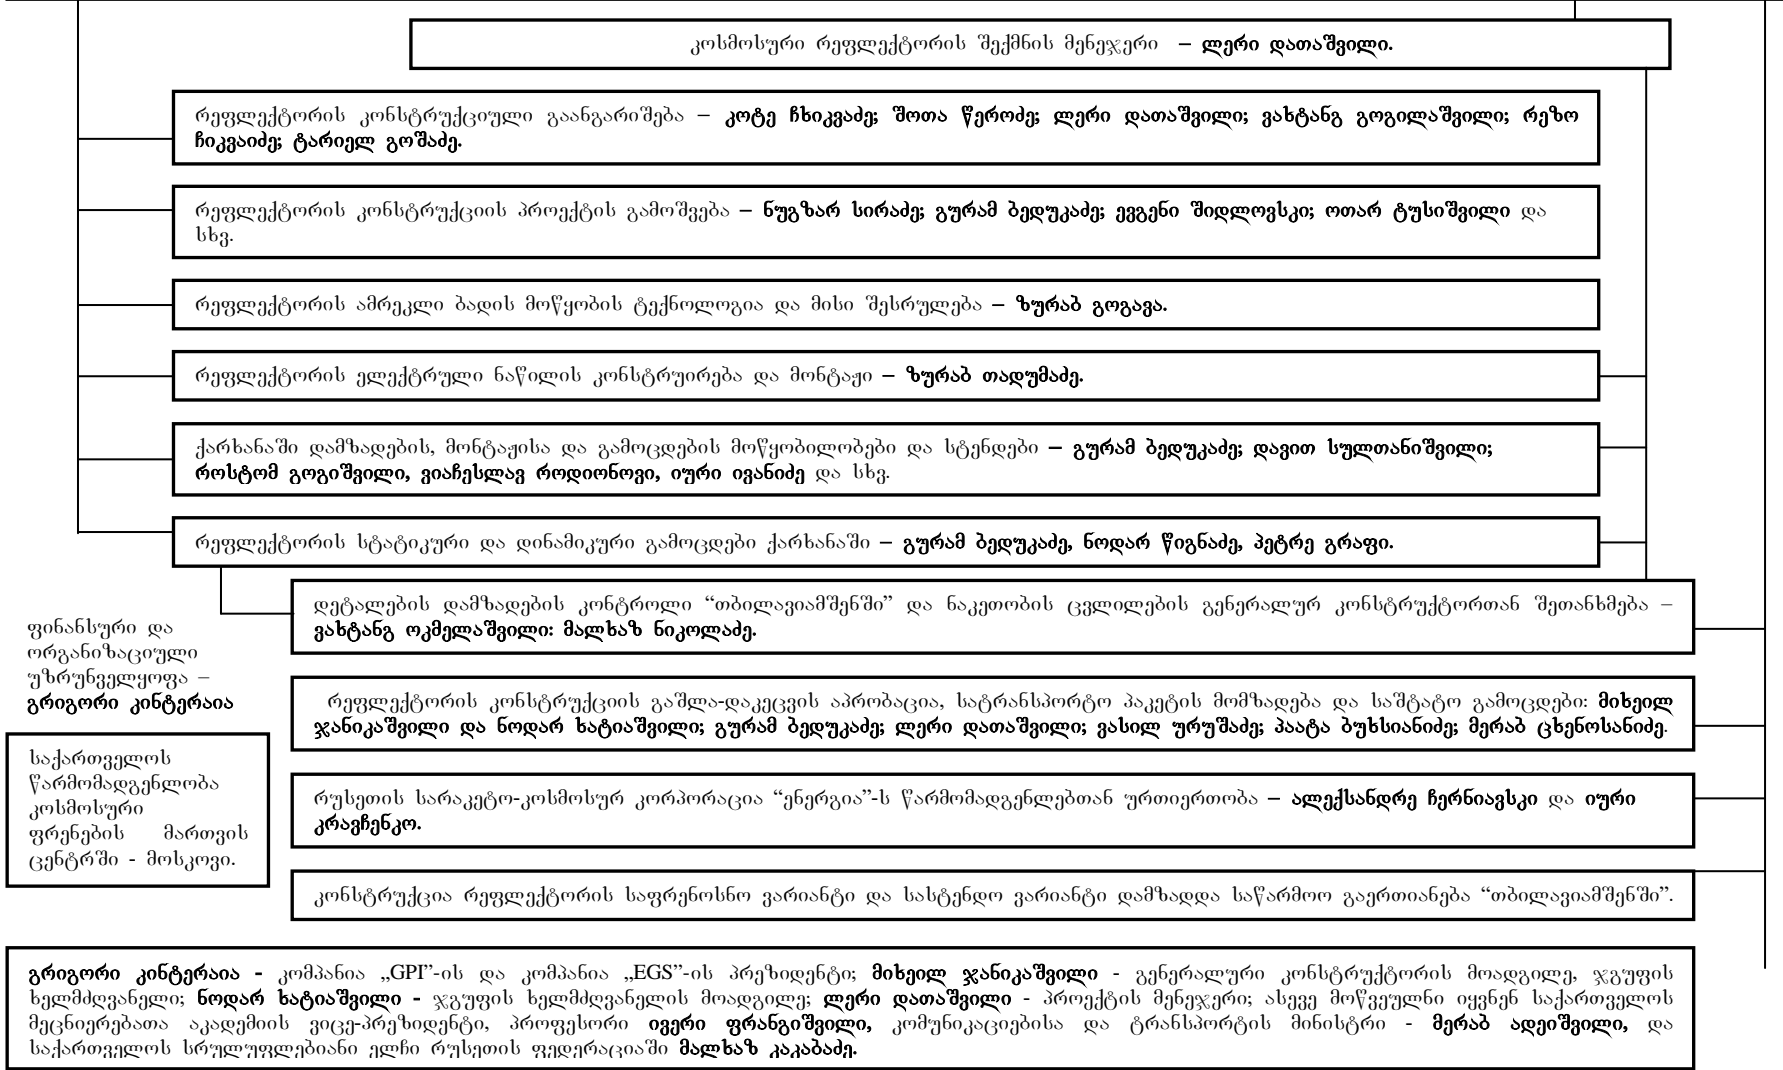 კოსმოსური რეფლექტორის შექმნის მენეჯერი – ლერი დათაშვილი.
რეფლექტორის კონსტრუქციული გაანგარიშება – კოტე ჩხიკვაძე; შოთა წეროძე; ლერი დათაშვილი; ვახტანგ გოგილაშვილი; რეზო
ჩიკვაიძე; ტარიელ გოშაძე.
რეფლექტორის კონსტრუქციის პროექტის გამოშვება – ნუგზარ სირაძე; გურამ ბედუკაძე; ევგენი შიდლოვსკი; ოთარ ტუსიშვილი და
სხვ.
რეფლექტორის ამრეკლი ბადის მოწყობის ტექნოლოგია და მისი შესრულება – ზურაბ გოგავა.
რეფლექტორის ელექტრული ნაწილის კონსტრუირება და მონტაჟი – ზურაბ თადუმაძე.
ქარხანაში დამზადების, მონტაჟისა და გამოცდების მოწყობილობები და სტენდები – გურამ ბედუკაძე; დავით სულთანიშვილი;
როსტომ გოგიშვილი, ვიაჩესლავ როდიონოვი, იური ივანიძე და სხვ.
რეფლექტორის სტატიკური და დინამიკური გამოცდები ქარხანაში – გურამ ბედუკაძე, ნოდარ წიგნაძე, პეტრე გრაფი.
დეტალების დამზადების კონტროლი “თბილავიამშენში” და ნაკეთობის ცვლილების გენერალურ კონსტრუქტორთან შეთანხმება –
ვახტანგ ოკმელაშვილი: მალხაზ ნიკოლაძე.
ფინანსური და
ორგანიზაციული
უზრუნველყოფა –
გრიგორი კინტერაია
რეფლექტორის კონსტრუქციის გაშლა-დაკეცვის აპრობაცია, სატრანსპორტო პაკეტის მომზადება და საშტატო გამოცდები: მიხეილ
ჯანიკაშვილი და ნოდარ ხატიაშვილი; გურამ ბედუკაძე; ლერი დათაშვილი; ვასილ ურუშაძე; პაატა ბუხსიანიძე; მერაბ ცხენოსანიძე.
საქართველოს
წარმომადგენლობა
კოსმოსური
ფრენების მართვის
ცენტრში - მოსკოვი.
რუსეთის სარაკეტო-კოსმოსურ კორპორაცია “ენერგია”-ს წარმომადგენლებთან ურთიერთობა – ალექსანდრე ჩერნიავსკი და იური
კრავჩენკო.
კონსტრუქცია რეფლექტორის საფრენოსნო ვარიანტი და სასტენდო ვარიანტი დამზადდა საწარმოო გაერთიანება “თბილავიამშენში”.
გრიგორი კინტერაია - კომპანია „GPI”-ის და კომპანია „EGS”-ის პრეზიდენტი; მიხეილ ჯანიკაშვილი - გენერალური კონსტრუქტორის მოადგილე, ჯგუფის
ხელმძღვანელი; ნოდარ ხატიაშვილი - ჯგუფის ხელმძღვანელის მოადგილე; ლერი დათაშვილი - პროექტის მენეჯერი; ასევე მოწვეულნი იყვნენ საქართველოს
მეცნიერებათა აკადემიის ვიცე-პრეზიდენტი, პროფესორი ივერი ფრანგიშვილი, კომუნიკაციებისა და ტრანსპორტის მინისტრი - მერაბ ადეიშვილი, და
საქართველოს სრულუფლებიანი ელჩი რუსეთის ფედერაციაში მალხაზ კაკაბაძე.